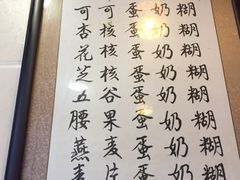 可可蛋奶糊
杏核蛋奶糊
花蛋奶糊
芝蛋奶糊
五谷蛋奶糊
腰果蛋奶糊
燕麦蛋奶糊
麦片蛋奶糊